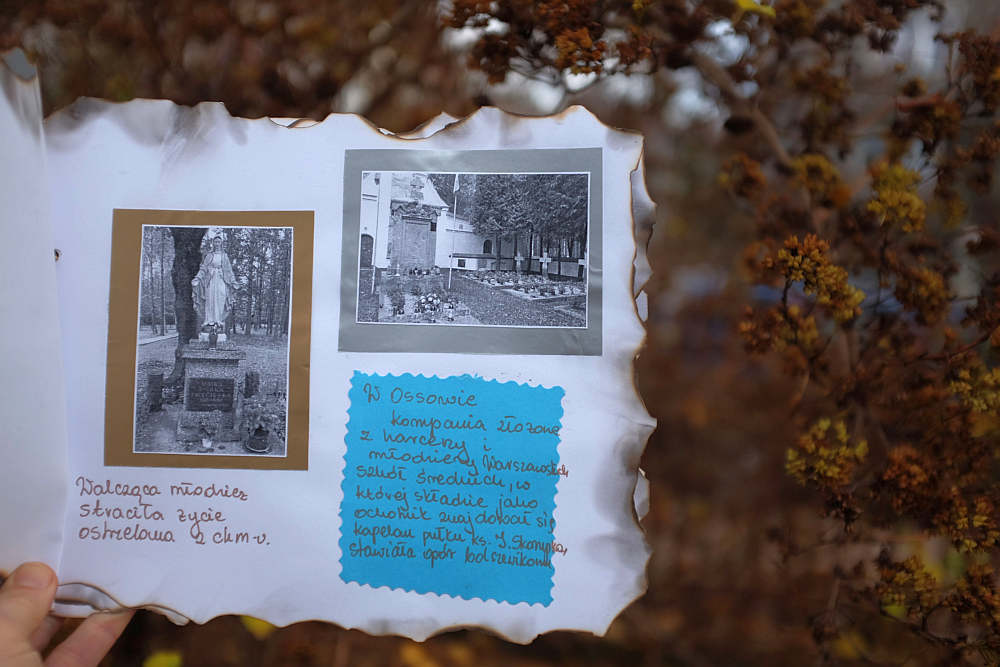 Walcząca młodzież
straciła życie
ostrzelana z ckm-u.
W Ossowie
kompania złożona
z harcerzy i
młodzieży Warszawskich
szkół średnich, w
której składzie jako
ochotnik znajdował się
kapelan pułku ks. I. Skorupka,
stawiała opór bolszewikom.